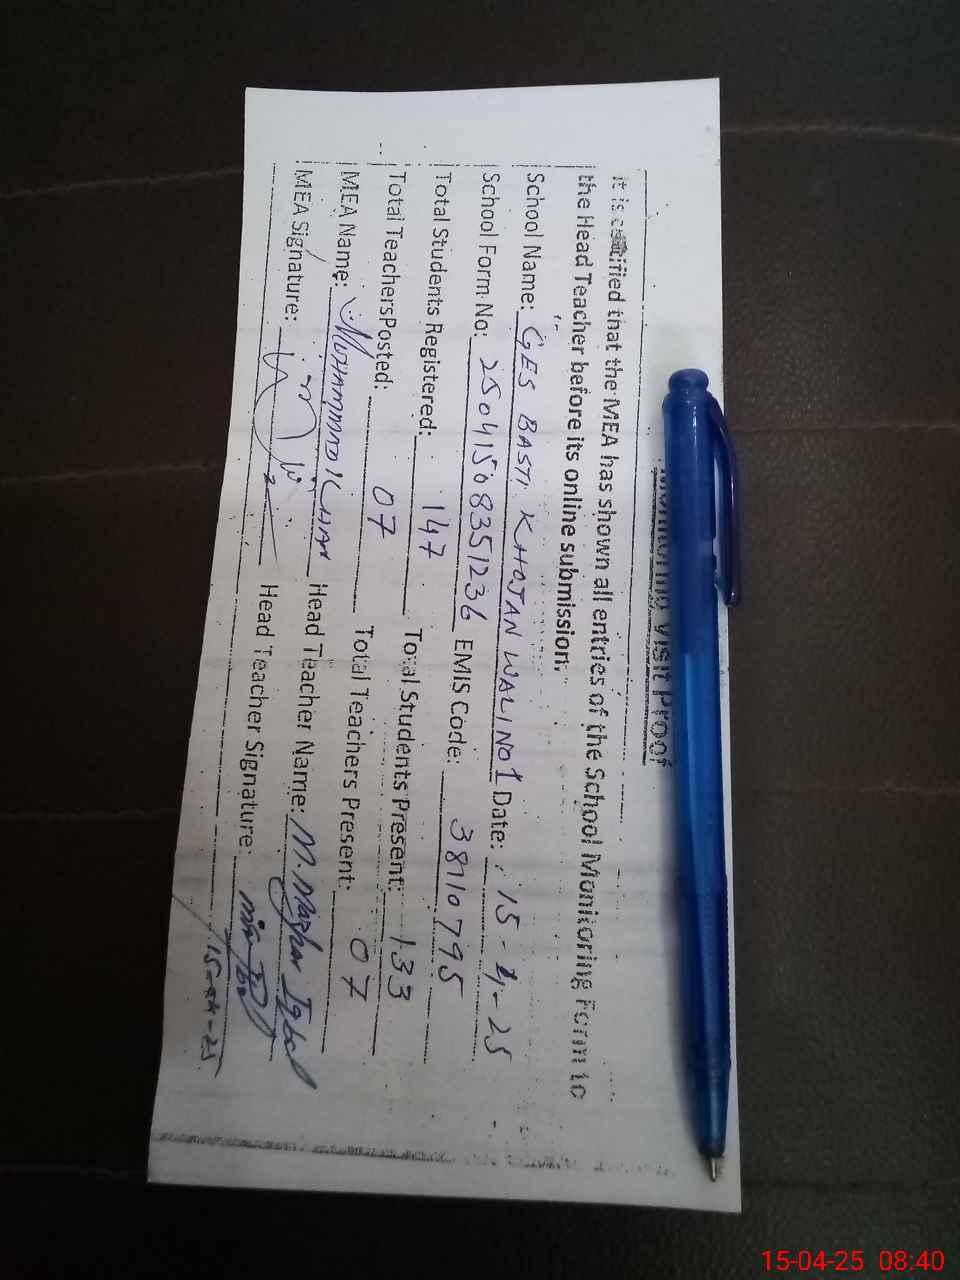 Monitoring Visit Proof
It is certified that the MEA has shown all entries of the School Monitoring Form to
the Head Teacher before its online submission.
School Name: GES BASTI KHOJAN WALI NO 1 Date: 15-4-25
School Form No: 25041508351236 EMIS Code: 38110795
Total Students Registered: 147 Total Students Present: 133
Total TeachersPosted: 07 Total Teachers Present: 07
MEA Name: MOHAMMAD KHAN Head Teacher Name: M. Mazhar Iqbal
MEA Signature: Head Teacher Signature:
15-04-25
15-04-25 08:40